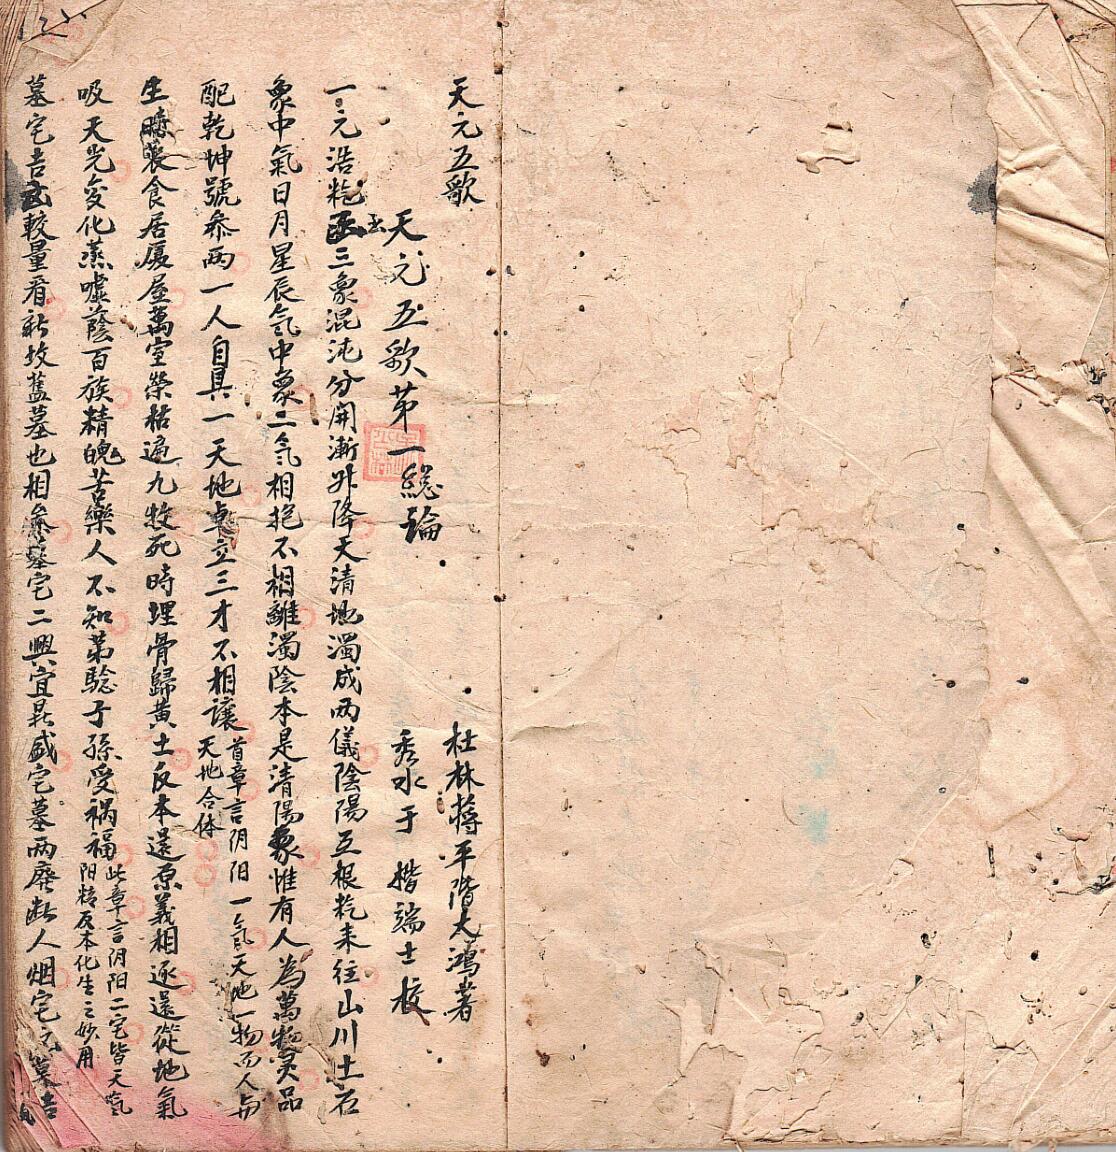 天元五歌
杜林蔣平階大鴻著
天元五歌第一總論
秀水于楷端士校
一元浩乾函三象混沌分開漸升降天清地濁成兩儀陰陽互根乾来往山川土石
象中氣日月星辰气中象二气相抱不相離濁陰本是清陽象惟有人為萬物灵品
配乾坤號叅两一人自具一天地卓立三才不相讓
首章言阴阳一氣天地一物而人与
天地合体
生時衰食居厦屋萬室榮枯遍九牧死時埋骨歸黃土反本還原義相逐還從地氣
吸天光変化蒸噓蔭百族精魄苦樂人不知第騐子孫受祸福
此章言阴阳二宅皆天氣
阳精反本化生之妙用
墓宅吉較量看新坟舊墓也相叅墓宅二興宜昌盛宅墓两廢断人烟宅墓吉